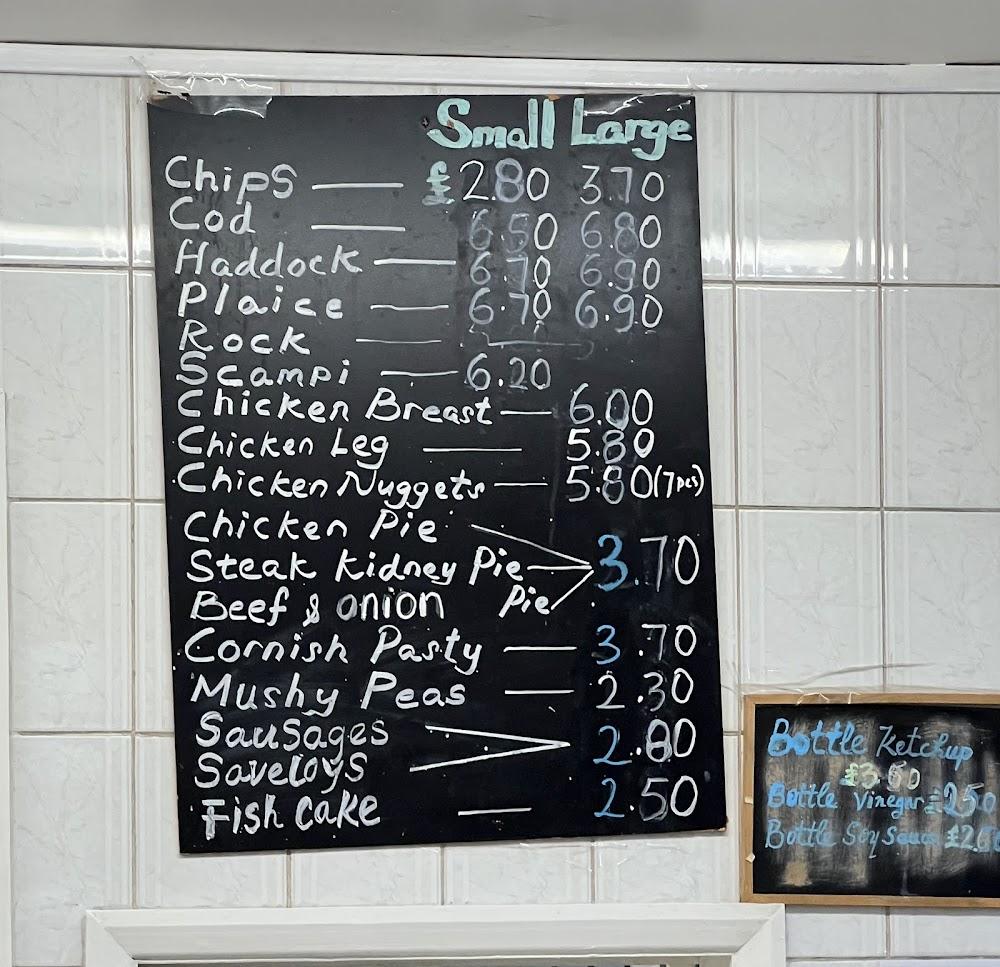 Small Large
Chips £2.80 3.70
Cod 6.50 6.80
Haddock 6.70 6.90
Plaice 6.70 6.90
Rock
Scampi 6.20
Chicken Breast 6.00
Chicken Leg 5.80
Chicken Nuggets 5.80 (7pcs)
Chicken Pie
Steak Kidney Pie 3.70
Beef & onion Pie
Cornish Pasty 3.70
Mushy Peas 2.30
Sausages
Saveloys 2.80
Fish Cake 2.50
Bottle Ketchup
Bottle Vinegar £2.50
Bottle Soy Sauce